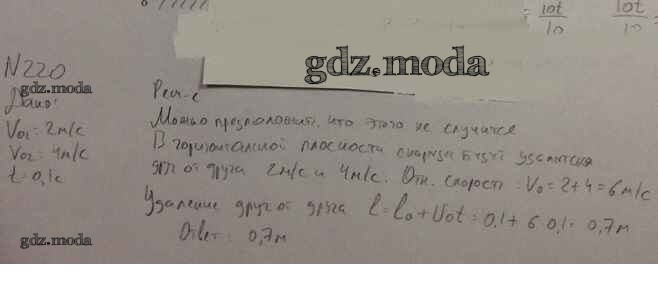 lot lot
10 10
gdz.moda
N220
gdz.moda
Дано:
V01 = 2м/с
V02 = 4м/с
t = 0,1с
Реш-е
Можно предположить, что этого не случится
В горизонтальной плоскости снаряды будут удаляться
друг от друга 2м/с и 4м/с. Отн. скорость: V0 = 2+4 = 6 м/с
Удаление друг от друга l = l0 + V0t = 0,1 + 6 0,1 = 0,7м
Ответ: 0,7м
gdz.moda